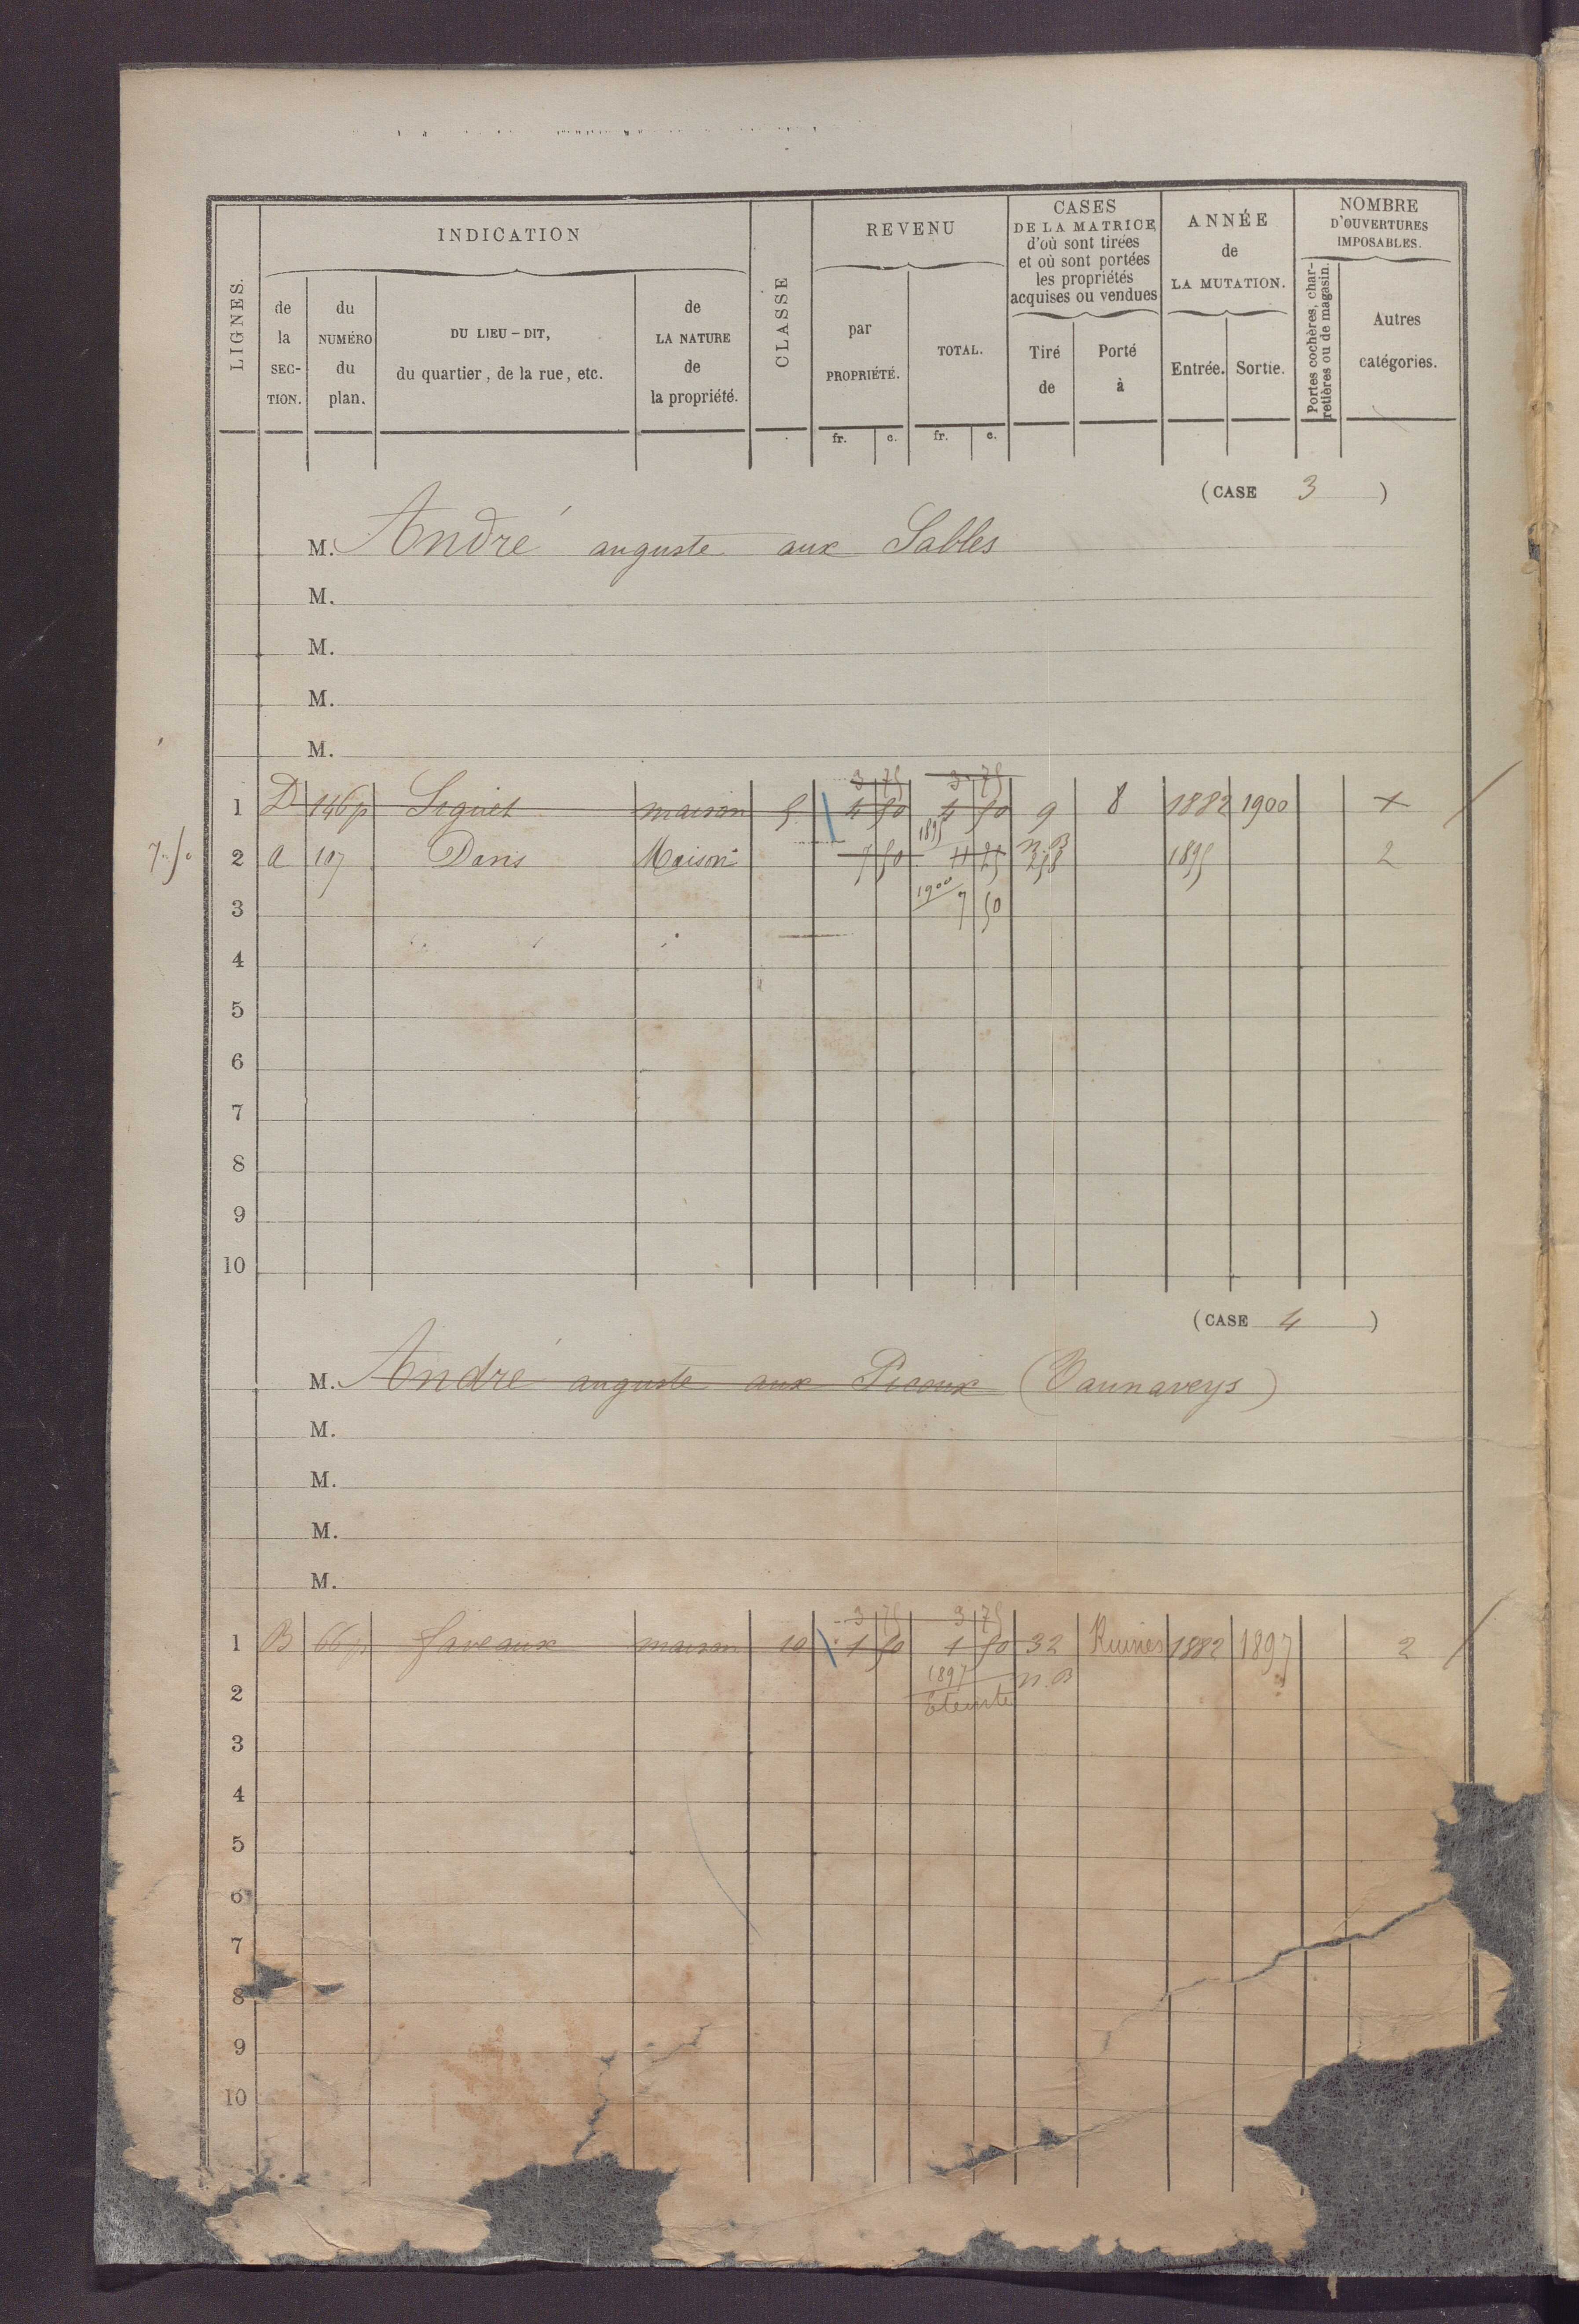 INDICATION
REVENU
CASES
DE LA MATRICE
d'où sont tirées
et où sont portées
les propriétés
acquises ou vendues
ANNÉE
de
LA MUTATION.
NOMBRE
D'OUVERTURES
IMPOSABLES.
LIGNES.
de
la
SEC-
TION.
du
NUMÉRO
du
plan.
DU LIEU-DIT,
du quartier, de la rue, etc.
de
LA NATURE
de
la propriété.
CLASSE
par
PROPRIÉTÉ.
TOTAL.
Tiré
de
Porté
à
Entrée.
Sortie.
Portes cochères, char-
retières ou de magasin.
Autres
catégories.
fr. c. fr. c.
(CASE 3)
M. André auguste aux Sables
M.
M.
M.
M.
3 75 3 75
1 D 146p maison 5 4 50 4 50 9 8 1882 1900
1895 n.B
7.50 2 a 107 Maison 7 50 11 25 258 1895 2
1900 7 50
3
4
5
6
7
8
9
10
(CASE 4)
M. André auguste aux (Vaunaveys)
M.
M.
M.
M.
3 75 3 75
1 B 66p maison 10 1 50 1 50 32 Ruines 1882 1897 2
1897 n.B
2 Eteinte
3
4
5
6
7
8
9
10